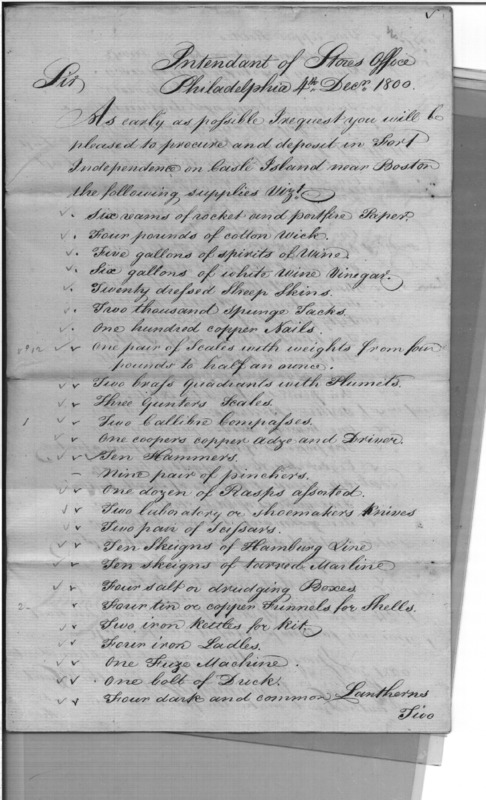 Intendant of Stores Office
Sir, Philadelphia 4th Decr. 1800.
As early as possible I request you will be
pleased to procure and deposit in Fort
Independence on Castle Island near Boston
the following supplies Vizt.
Six reams of rocket and portfire Paper.
Four pounds of cotton Wick.
Five gallons of spirits of Wine.
Six gallons of white wine Vinegar.
Twenty dressed Sheep Skins.
Two thousand Spunge Tacks.
One hundred copper Nails.
One pair of Scales with weights from four
pounds to half an ounce.
Two brass quadrants with Plumets.
Three Gunters Scales.
Two Callibre Compasses.
One coopers copper adze and Driver.
Ten Hammers.
Nine pair of pinchers.
One dozen of Rasps assorted.
Two laboratory or shoemakers Knives
Two pair of Scissars.
Ten Skeigns of Hamburg Line
Ten skeigns of tarred Marline
Four salt or drudging Boxes
Four tin or copper Funnels for Shells.
Two iron kettles for kit,
Four iron Ladles.
One Fuze Machine.
One bolt of Duck.
Four dark and common Lanthorns
Two